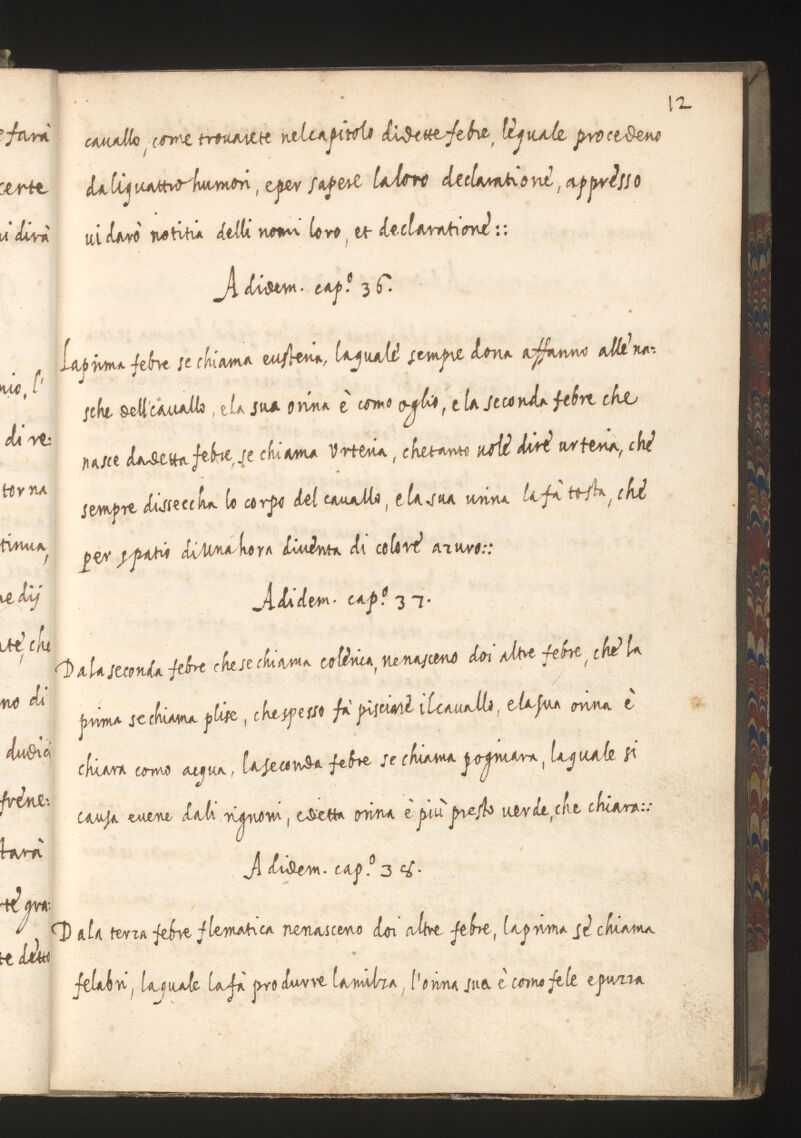 12
e farà
certe
ui dirà
nio, l'
di re:
torna
tinua,
ne dij
ate, che
no di
dudici
frene:
tarà
rte gra:
te detto
cavallo, come trovarete nel capitolo didette febre, lequale procedeno
daliquattro humori, eper sapere laloro declaratione, appresso
ui darò notitia delli nomi loro, et declaratione::
Adidem. cap.º 36.
Laprima febre se chiama eusteria, laquale sempre dona affanno alle na:
sche dell'cavallo, ela sua orina è como oglio, ela seconda febre che
nasce dadetta febre, se chiama Urteria, chetanto uole dire urteria, che
sempre disseccha lo corpo del cavallo, ela sua urina la fà tosta, che
per spatio diunahora diventa di colore azuro::
Adidem. cap.º 37.
Dalaseconda febre chesechiama colerica, nenasceno doi altre febre, che la
prima sechiama plise, chespesso fà pisciare ilcavallo, elasua orina è
chiara como acqua, laseconda febre se chiama pogmara, laquale si
causa euene dali rignoni, edetta orina è più presto uerde, che chiara::
Adidem. cap.º 38.
Dala terza febre flematica nenasceno doi altre febre, laprima se chiama
felabri, laquale lafà produrre lamilza, l'orina sua è como fele epuzza